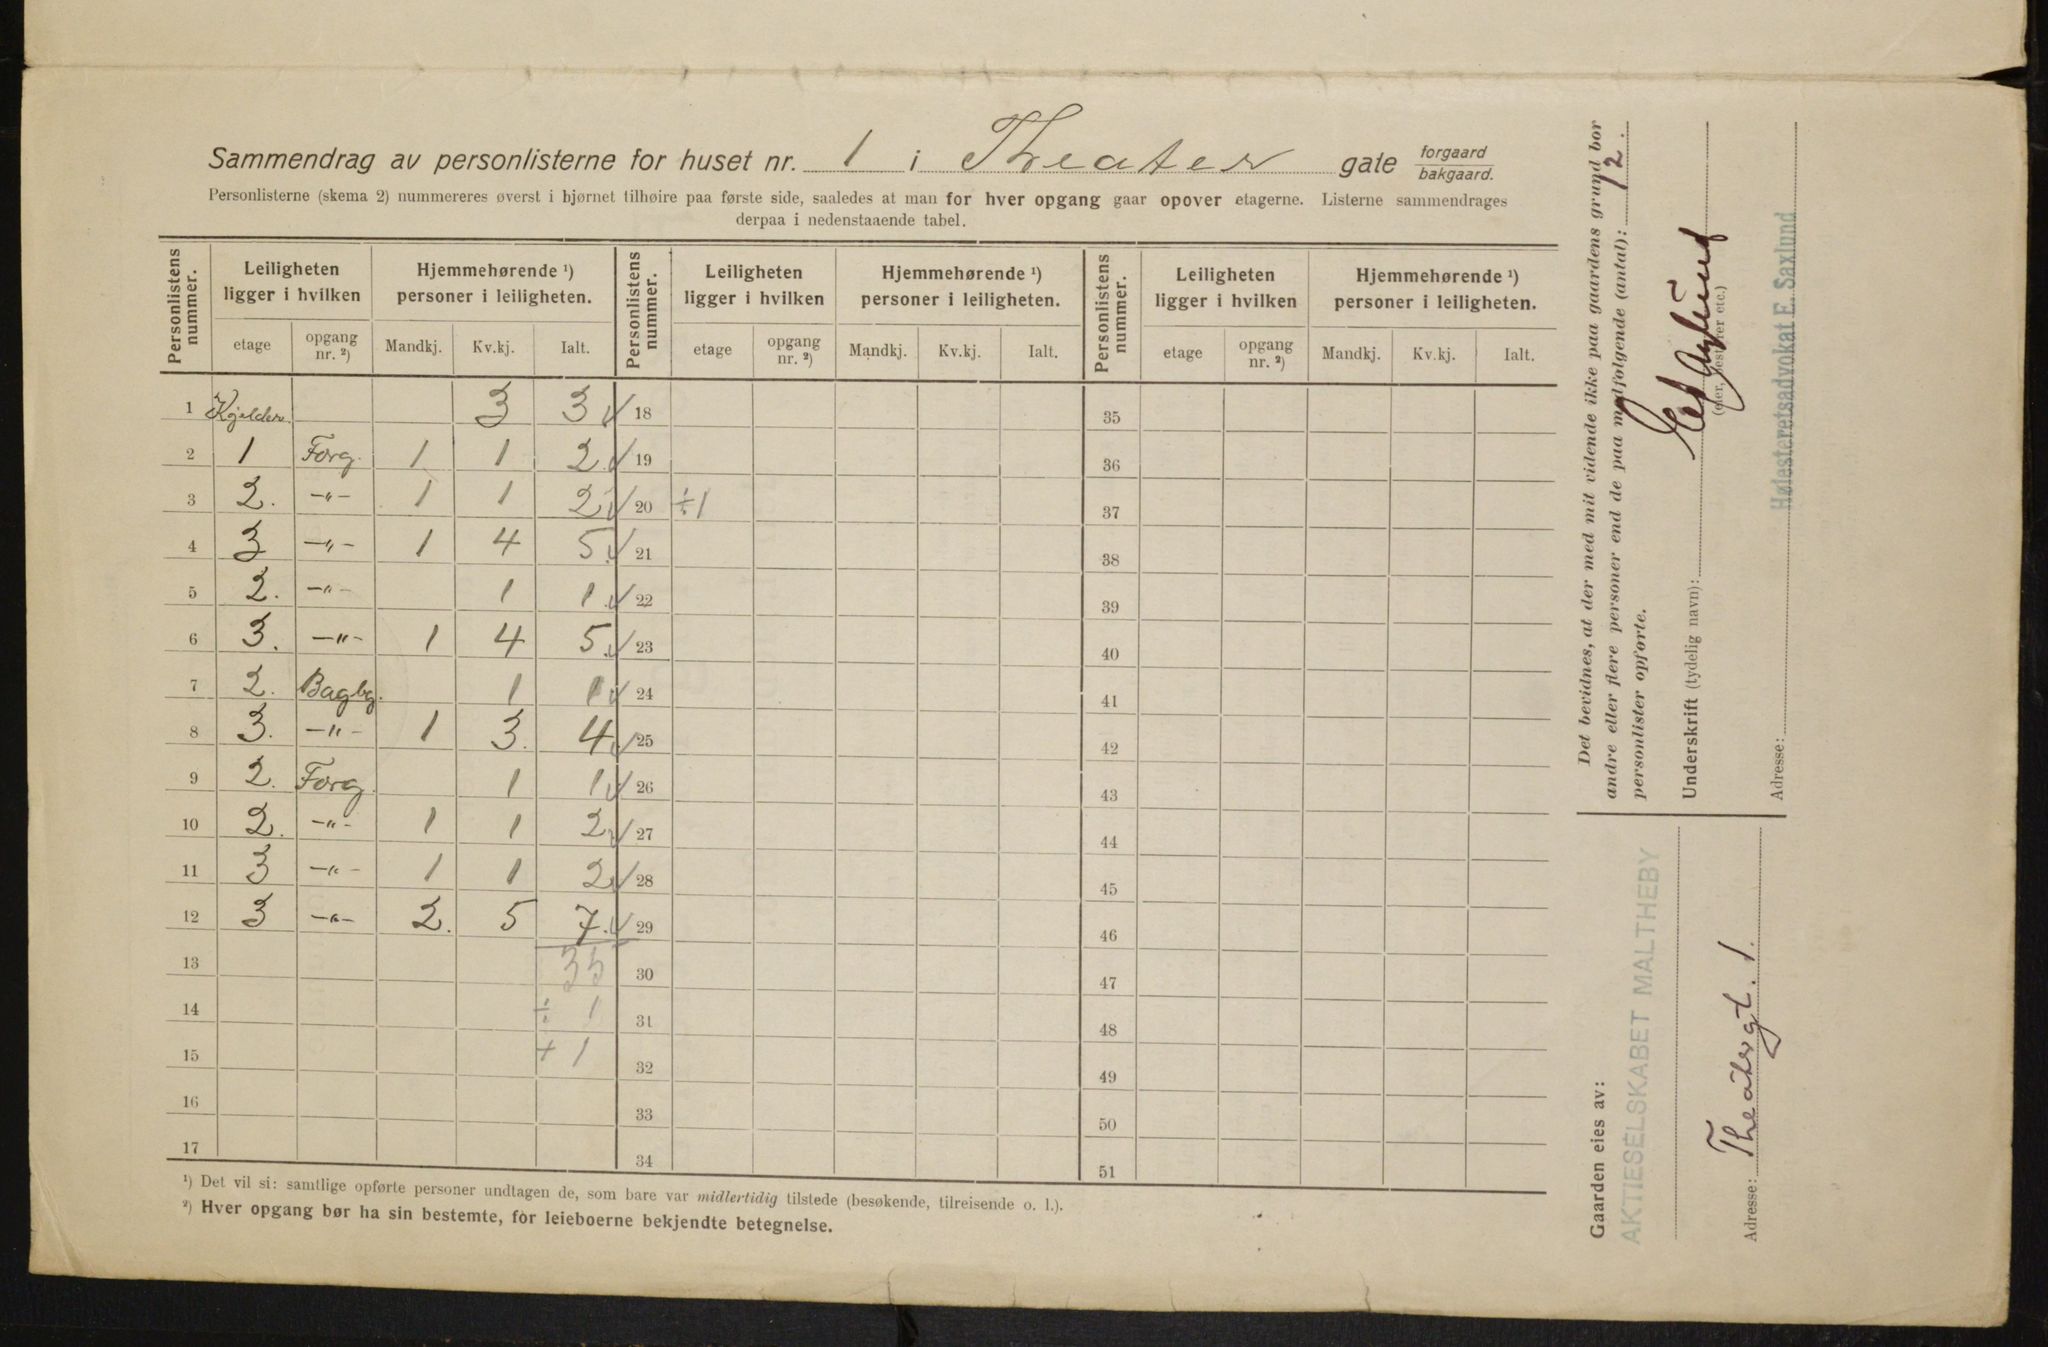 Sammendrag av personlisterne for huset nr. 1 i Theater gate forgaard bakgaard.
Personlisterne (skema 2) nummereres øverst i hjørnet tilhøire paa første side, saaledes at man for hver opgang gaar opover etagerne. Listerne sammendrages
derpaa i nedenstaaende tabel.
Personlistens nummer. Leiligheten ligger i hvilken Hjemmehørende ¹) personer i leiligheten. Personlistens nummer. Leiligheten ligger i hvilken Hjemmehørende ¹) personer i leiligheten. Personlistens nummer. Leiligheten ligger i hvilken Hjemmehørende ¹) personer i leiligheten.
etage opgang nr. ²) Mandkj. Kv.kj. Ialt. etage opgang nr. ²) Mandkj. Kv.kj. Ialt. etage opgang nr. ²) Mandkj. Kv.kj. Ialt.
1 Kjelder 3 3 √ 18 35
2 1 Forg. 1 1 2 √ 19 36
3 2. -"- 1 1 2 √ 20 ÷1 37
4 3 -"- 1 4 5 √ 21 38
5 2. -"- 1 1 √ 22 39
6 3. -"- 1 4 5 √ 23 40
7 2. Bagbg. 1 1 √ 24 41
8 3. -"- 1 3 4 √ 25 42
9 2. Forg. 1 1 √ 26 43
10 2. -"- 1 1 2 √ 27 44
11 3 -"- 1 1 2 √ 28 45
12 3 -"- 2. 5 7. √ 29 46
13 35 30 47
14 ÷ 1 31 48
15 + 1 32 49
16 33 50
17 34 51
¹) Det vil si: samtlige opførte personer undtagen de, som bare var midlertidig tilstede (besøkende, tilreisende o. l.).
²) Hver opgang bør ha sin bestemte, for leieboerne bekjendte betegnelse.
Det bevidnes, at der med mit vidende ikke paa gaardens grund bor
andre eller flere personer end de paa medfølgende (antal): 12.
personlister opførte.
Underskrift (tydelig navn):
(eier, bestyrer etc.)
Adresse: Høiesteretsadvokat E. Saxlund
Gaarden eies av:
AKTIESELSKABET MALTHEBY
Adresse: Theatergt. 1.